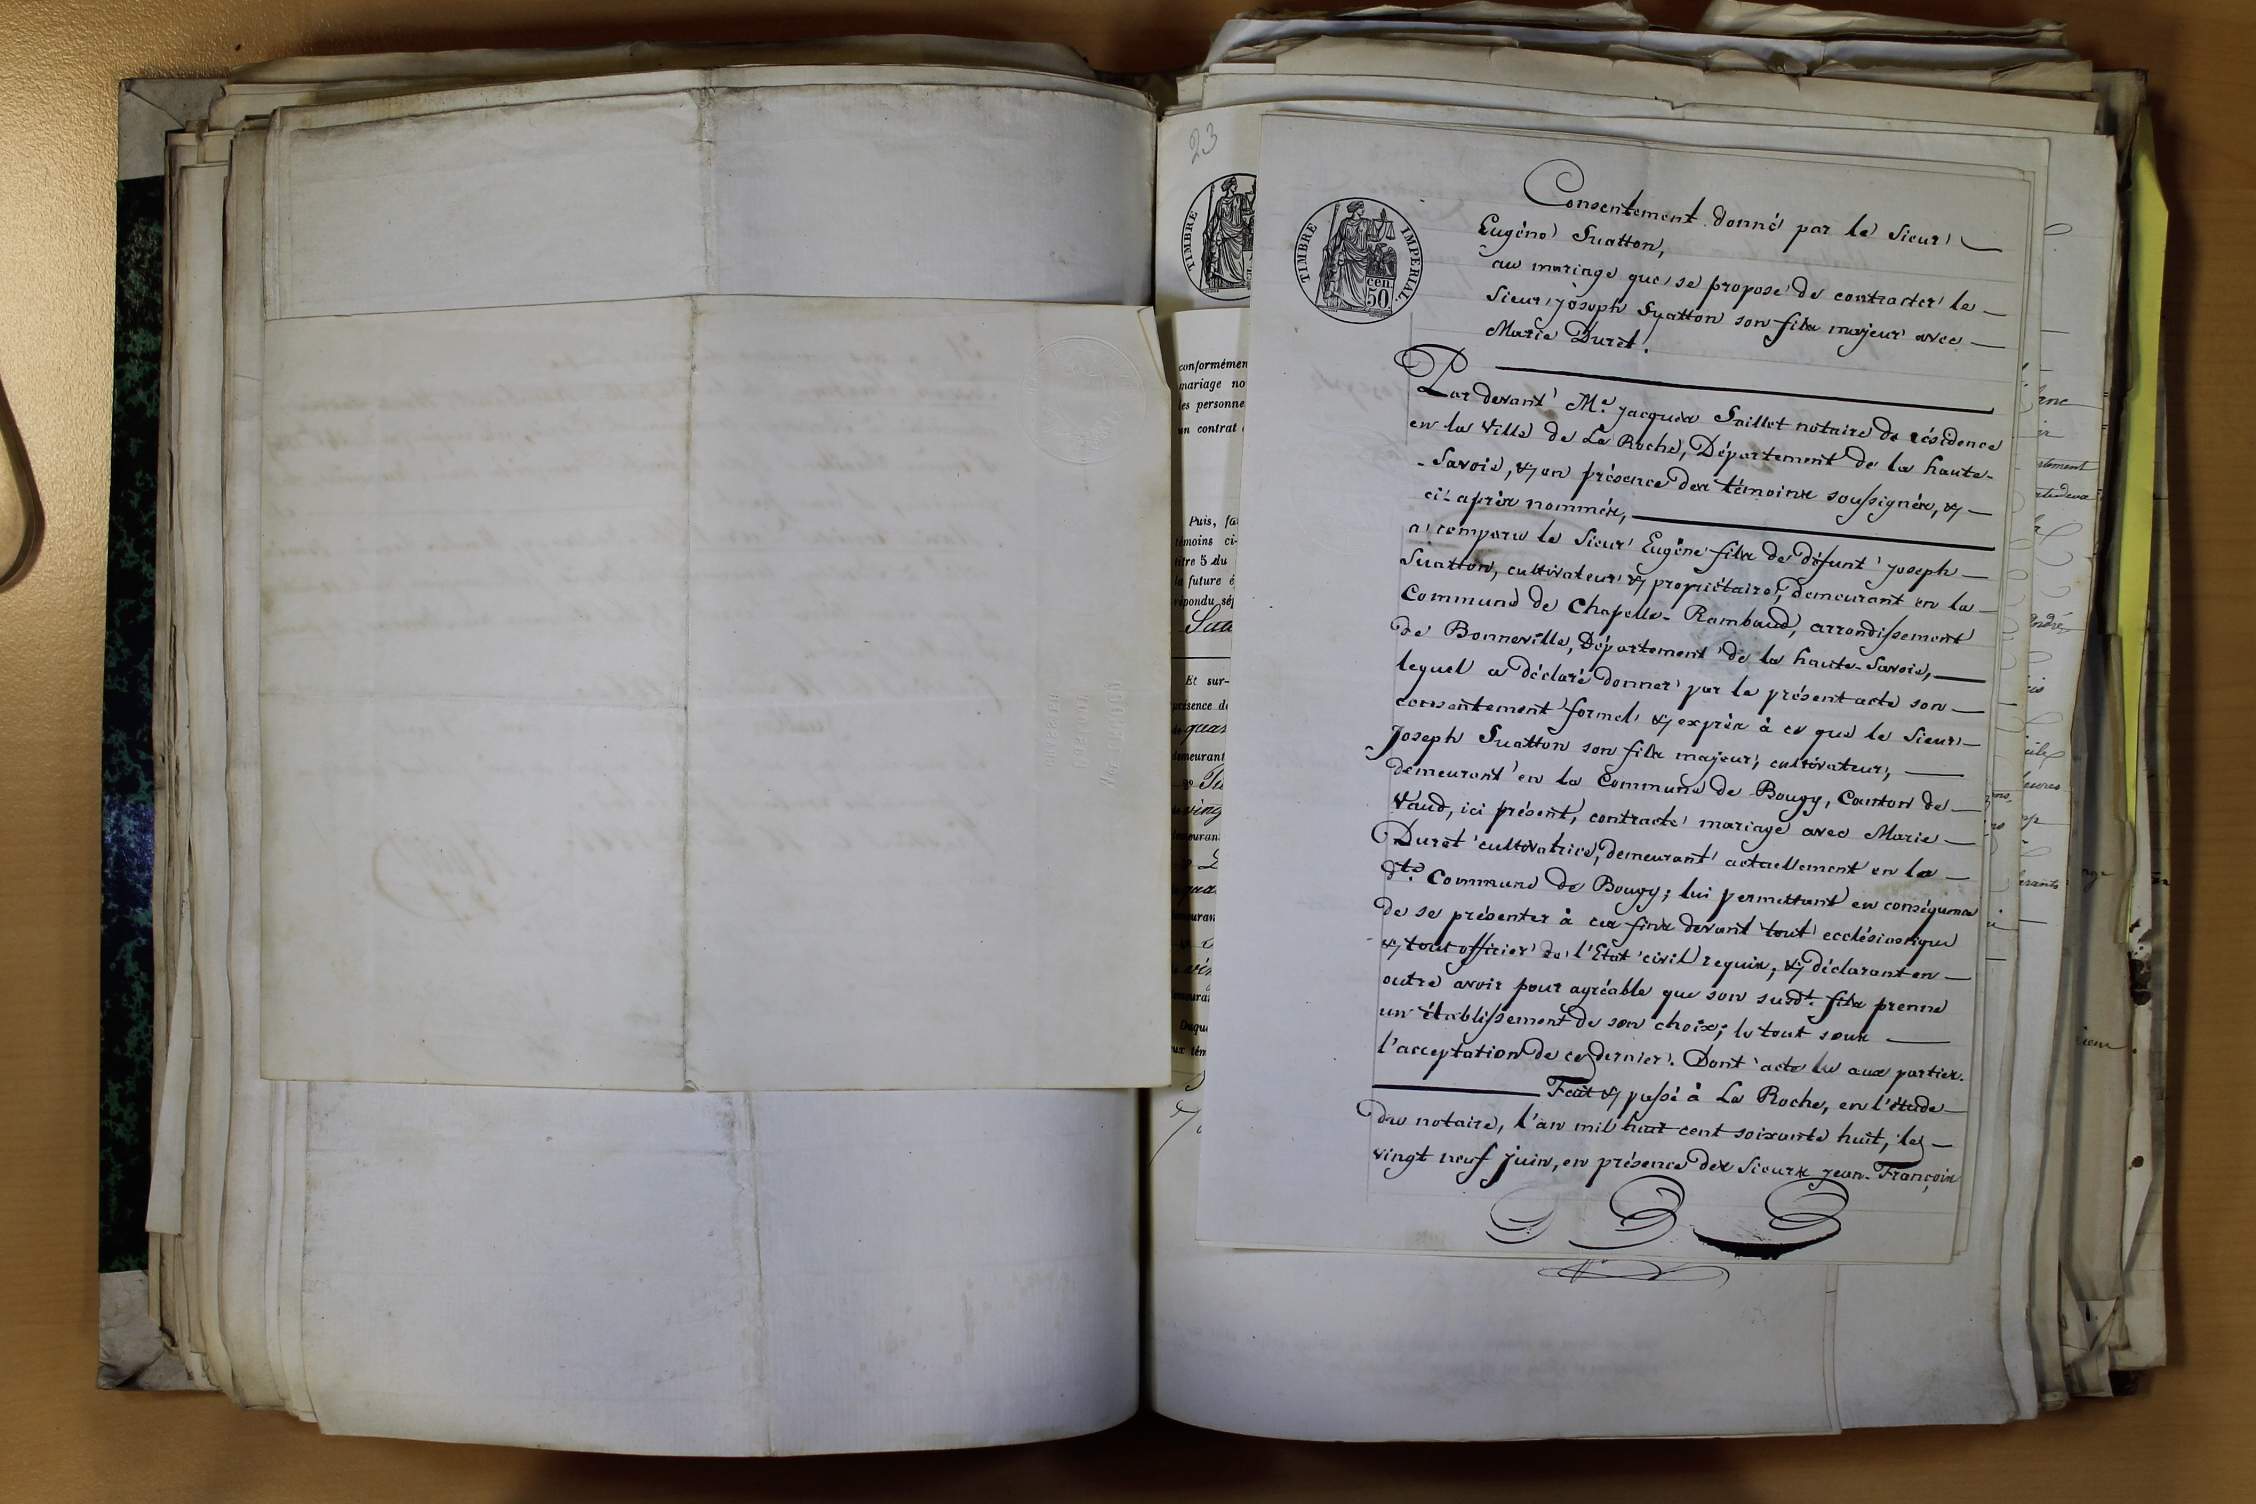 23
TIMBRE
TIMBRE IMPERIAL.
cen.
50
Consentement donné par le Sieur
Eugène Suatton,
au mariage que se propose de contracter le
Sieur joseph Suatton son fils majeur avec
Marie Duret.
Par devant Me. jacques Saillet notaire de résidence
en la Ville de La Roche, Département de la haute-
Savoie, & en présence des témoins soussignés, &
ci-après nommés,
a comparu le Sieur Eugène fils de défunt joseph
Suatton, cultivateur & propriétaire, demeurant en la
Commune de Chapelle-Rambaud, arrondissement
de Bonneville, Département de la haute-Savoie,
lequel a déclaré donner par le présent acte son
consentement formel & exprès à ce que le Sieur
Joseph Suatton son fils majeur, cultivateur,
demeurant en la Commune de Bougy, Canton de
Vaud, ici présent, contracte mariage avec Marie
Duret cultivatrice, demeurant actuellement en la
dte. Commune de Bougy; lui permettant en conséquence
de se présenter à ces fins devant tout ecclésiastique
& tout officier de l'Etat civil requis, & déclarant en
outre avoir pour agréable que son sudt. fils prenne
un établissement de son choix; le tout sous
l'acceptation de ce dernier. Dont acte lu aux parties.
Fait & passé à La Roche, en l'étude
du notaire, l'an mil huit cent soixante huit, le
vingt neuf juin, en présence des Sieurs jean-François
conformémen
mariage no
les personne
un contrat
Puis, fa
témoins ci-
titre 5 du
la future é
répondu sép
Et sur-
présence de
quar
demeurant
ving